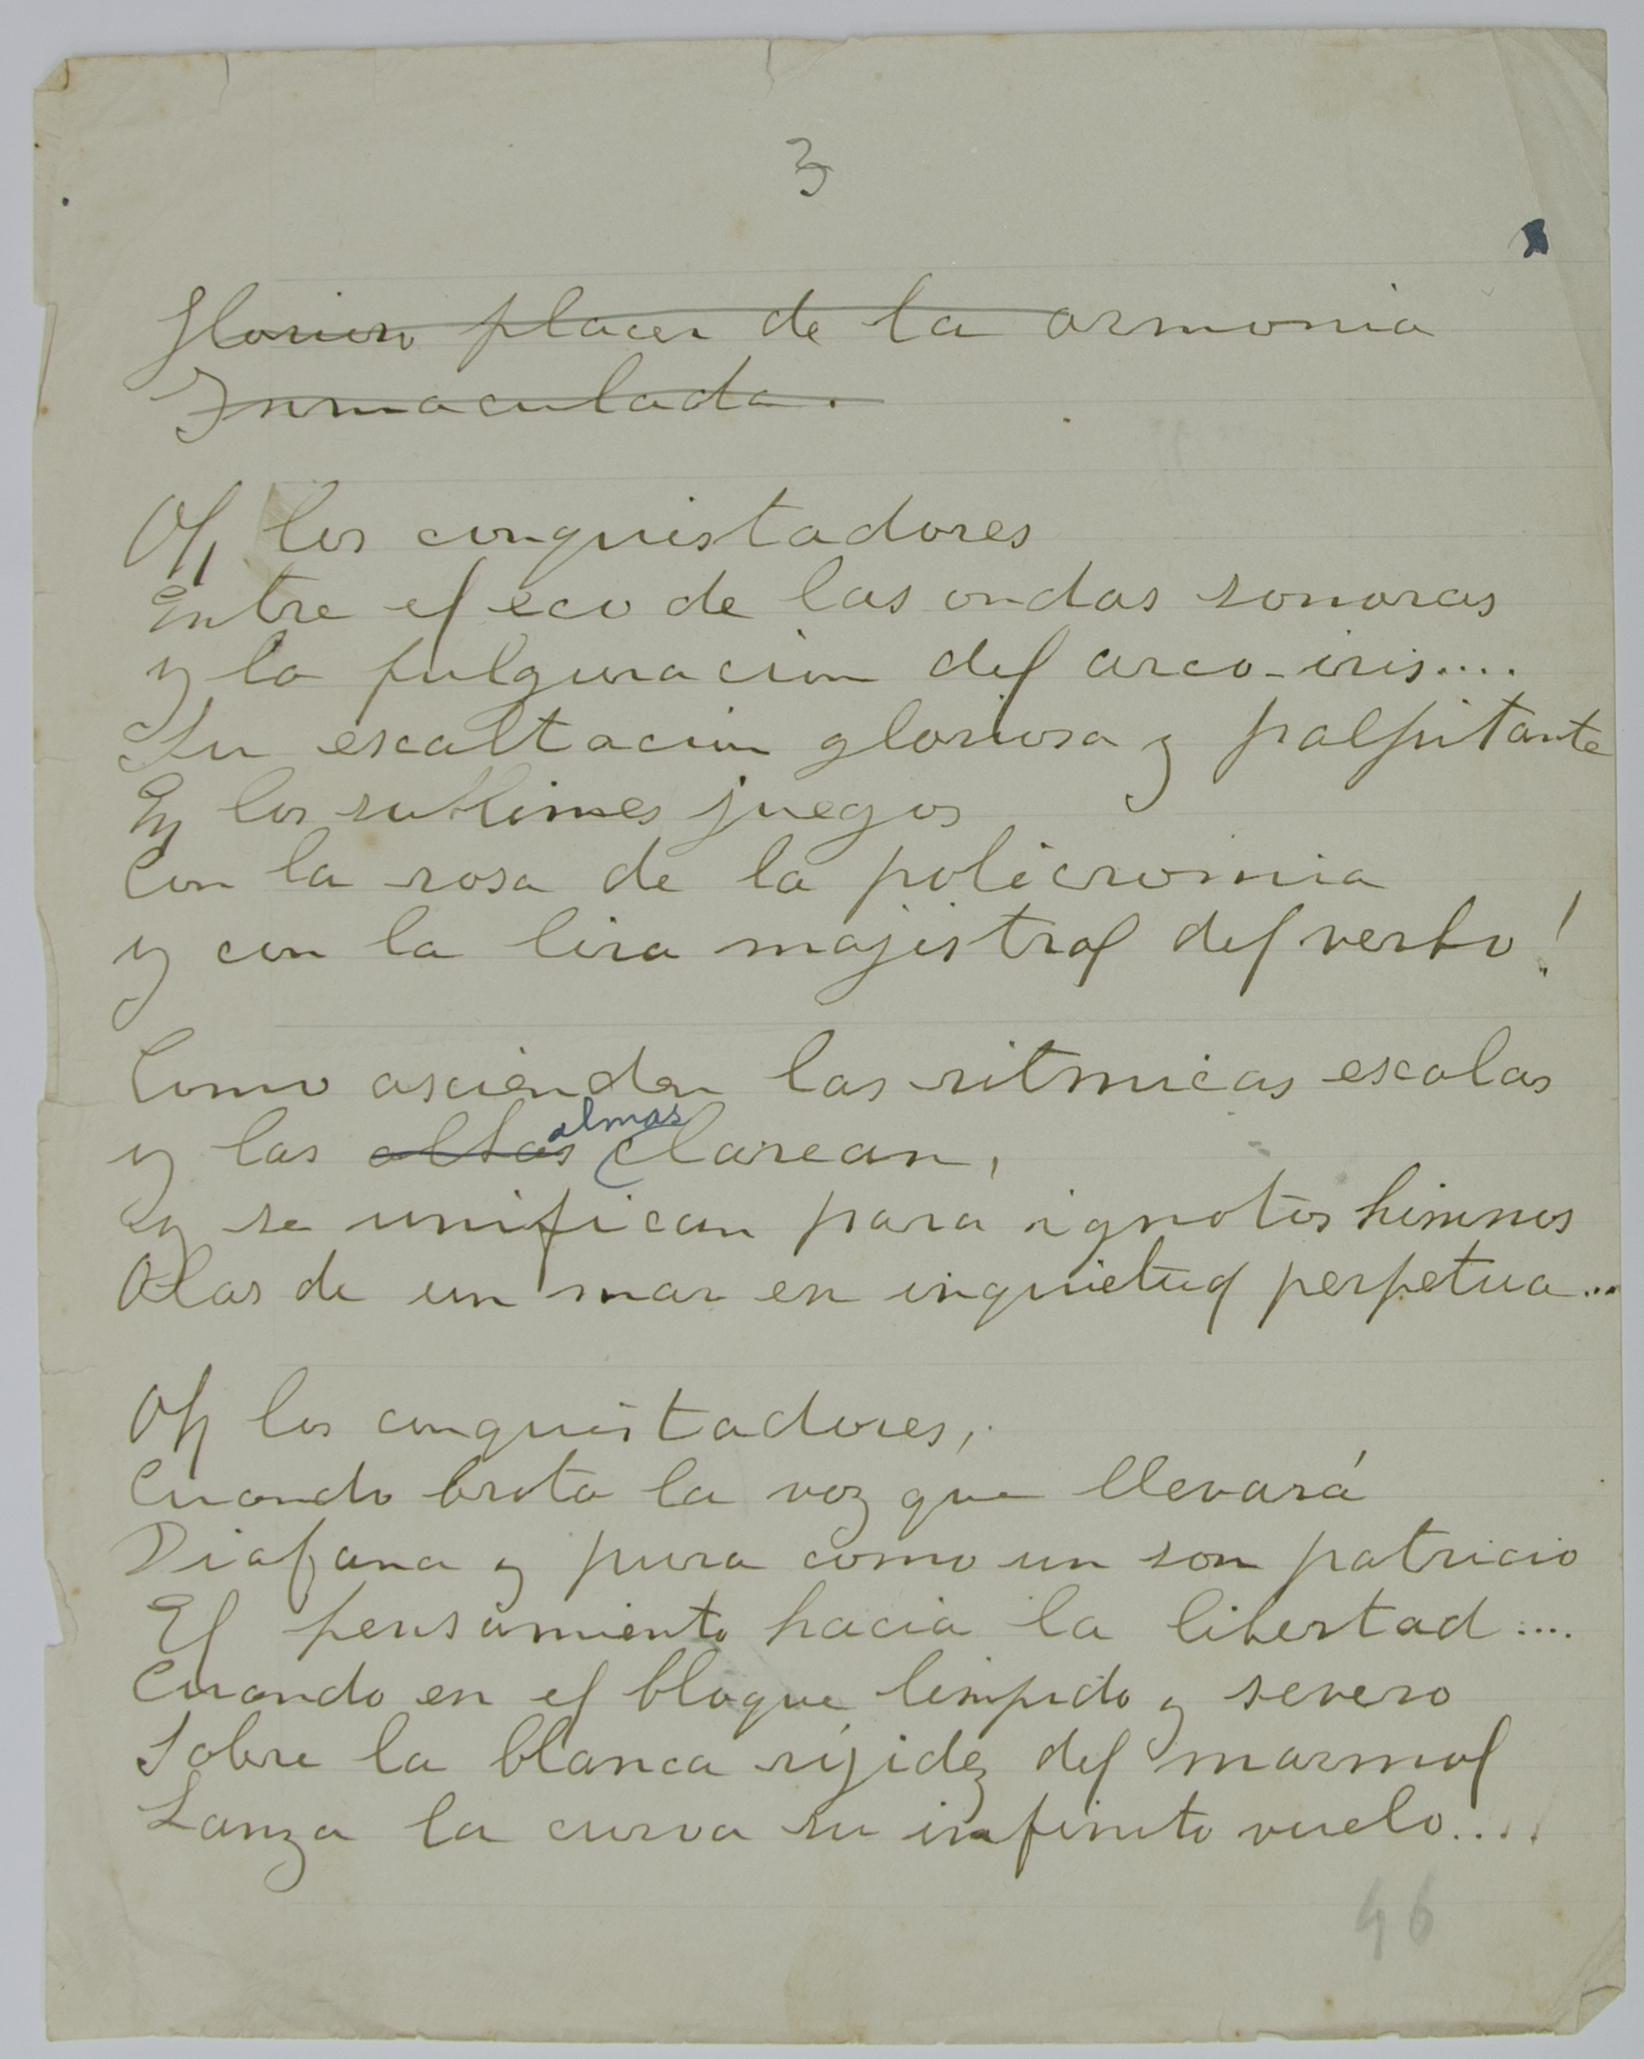 3
Glorioso placer de la armonia
Inmaculada.
Oh los conquistadores
Entre el eco de las ondas sonoras
y la fulguracion del arco-iris....
Su escaltacion gloriosa y palpitante
En los sublimes juegos
Con la rosa de la policromia
y con la lira majistral del verbo!
Como ascienden las ritmicas escalas
almas
y las altas clarean,
y se unifican para ignotos himnos
Olas de un mar en inquietud perpetua...
Oh los conquistadores,
Cuando brota la voz que llevará
Diafana y pura como un son patricio
El pensamiento hacia la libertad....
Cuando en el bloque limpido y severo
Sobre la blanca rijidez del marmol
Lanza la curva su infinito vuelo....
46